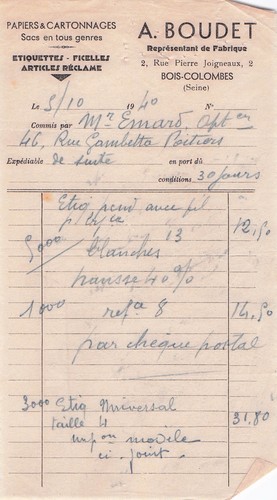 PAPIERS & CARTONNAGES
Sacs en tous genres
ETIQUETTES - FICELLES
ARTICLES RÉCLAME
A. BOUDET
Représentant de Fabrique
2, Rue Pierre Joigneaux, 2
BOIS-COLOMBES
(Seine)
Le 5/10 1940 N°
Commis par Mr Emard, Opt
46, Rue Gambetta Poitiers
Expédiable de suite en port dû
conditions 30 jours
Etiq pend avec fil
13 12,50
5000 blanches
hausse 40 %
1000 refce 8 14,50
par chèque postal
3000 Etiq Universal
taille 4 31.80
modèle
ci-joint